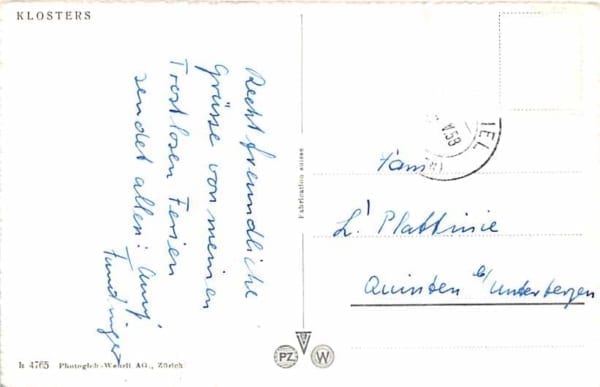 KLOSTERS
Recht freundliche
Grüsse von meinen
Trostlosen Ferien
sendet allen:
h 4765 Photoglob-Wehrli AG., Zürich
Fabrication suisse
PZ
W
V 58
IEL
Fam.
Quinten b/ Unterterzen